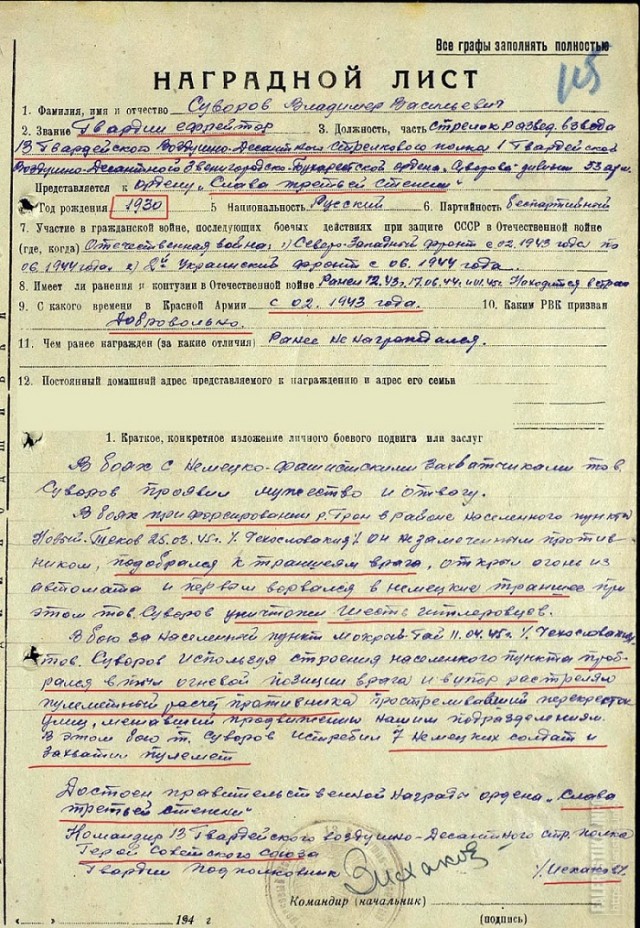 Все графы заполнять полностью
115
НАГРАДНОЙ ЛИСТ
1. Фамилия, имя и отчество Суворов Владимир Васильевич
2. Звание Гвардии ефрейтор 3. Должность, часть стрелок развед. взвода
13 Гвардейского Воздушно-Десантного стрелкового полка 1 Гвардейской
Воздушно-Десантной Звенигородско-Бухарестской ордена „Суворова" дивизии 53 арм.
Представляется к ордену „Слава третьей степени"
Год рождения 1930 5 Национальность Русский 6. Партийность беспартийный
7. Участие в гражданской войне, последующих боевых действиях при защите СССР в Отечественной войне
(где, когда) Отечественная война: 1) Северо-Западный фронт с 02.1943 года по
06.1944 года 2) 2й Украинский фронт с 06.1944 года
8. Имеет ли ранения и контузии в Отечественной войне Ранен 12.43г. 17.06.44г. Находится в строю
9. С какого времени в Красной Армии с 02.1943 года. 10. Каким РВК призван
Добровольно.
11. Чем ранее награжден (за какие отличия) Ранее не награждался.
12. Постоянный домашний адрес представляемого к награждению и адрес его семьи
1. Краткое, конкретное изложение личного боевого подвига или заслуг
В боях с немецко-фашистскими захватчиками тов.
Суворов проявил мужество и отвагу.
В боях при форсировании р. Грон в районе населенного пункта
Новый-Теков 25.03.45г. /Чехословакия/ он незамеченным против-
ником, подобрался к траншеям врага, открыл огонь из
автомата и первым ворвался в немецкие траншеи при
этом тов. Суворов уничтожил шесть гитлеровцев.
В бою за населенный пункт Мокрай-Гай 11.04.45г. /Чехословакия/
тов. Суворов используя строения населенного пункта проб-
рался в тыл огневой позиции врага и в упор расстрелял
пулеметный расчет противника простреливавший перекресток
улиц, мешавший продвижению нашим подразделениям.
В этом бою т. Суворов истребил 7 немецких солдат и
захватил пулемет
Достоен правительственной награды ордена „Слава
третьей степени"
Командир 13 Гвардейского воздушно-Десантного стр. полка
Герой Советского Союза
Гвардии Подполковник /Исхаков/.
Командир (начальник)
« » 194 г (подпись)